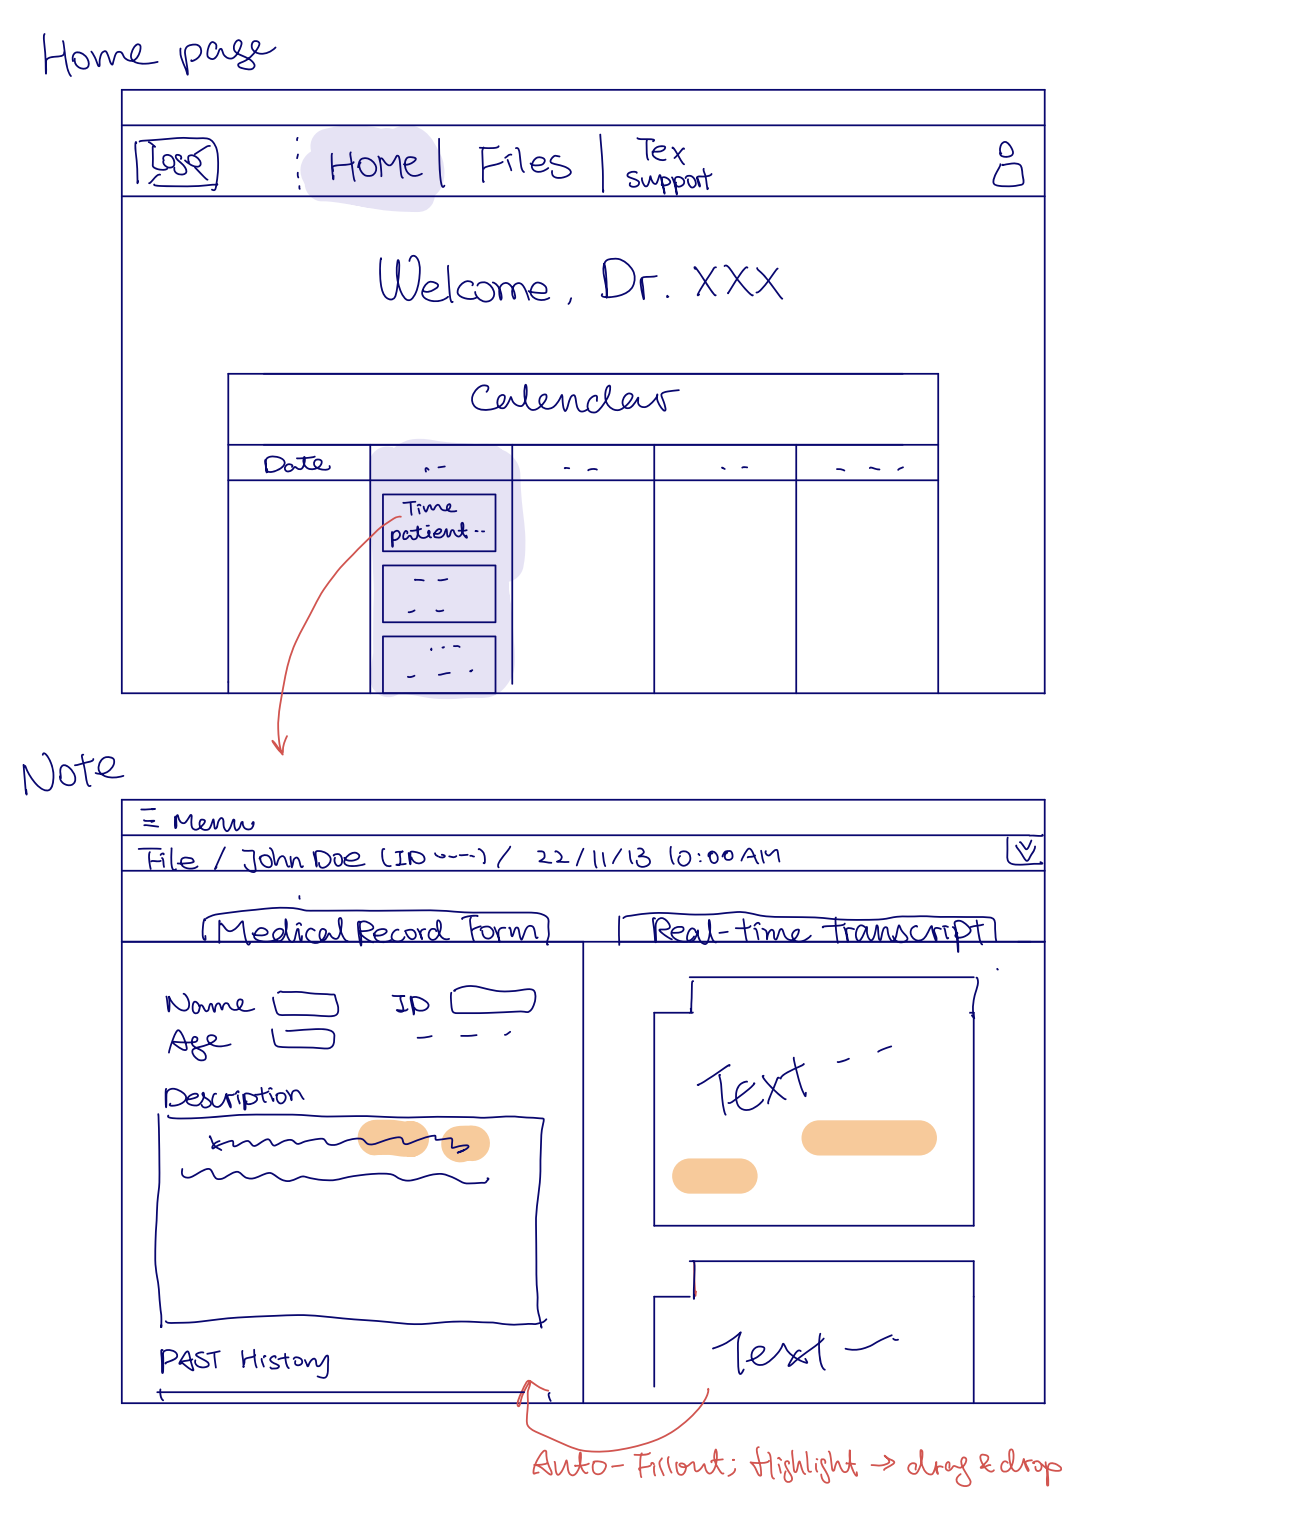 Home page
Logo
HOME
Files
Tex
support
Welcome, Dr. XXX
Calendar
Date
Time
patient
Note
Menu
File / John Doe (ID ----) / 22/11/13 10:00 AM
Medical Record Form
Real-time transcript
Name
ID
Age
Description
Text
PAST History
Text
Auto-Fillout; Highlight → drag & drop